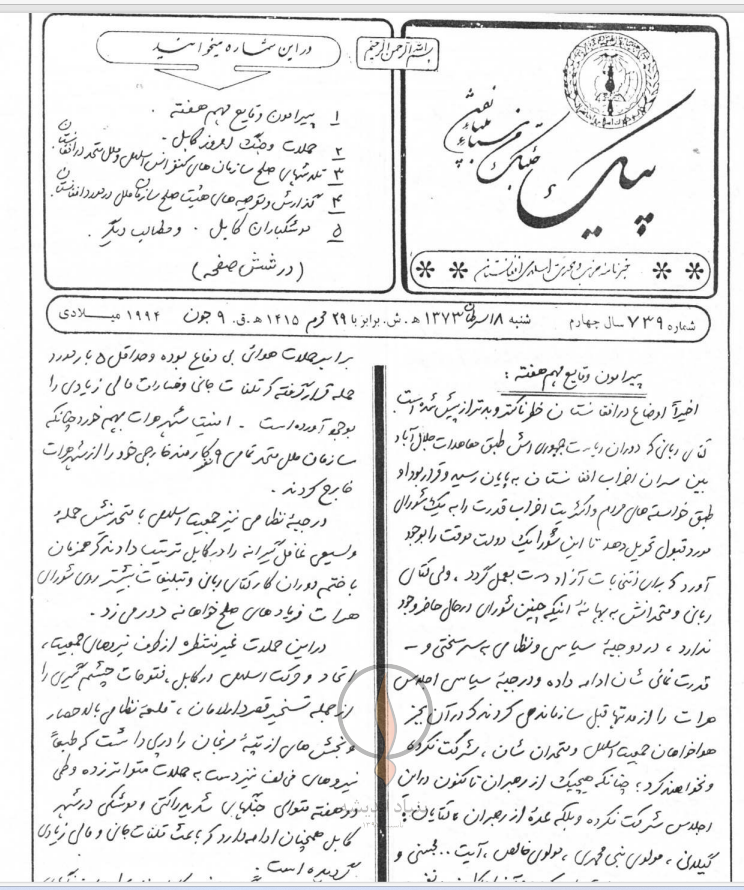 بسم الله الرحمن الرحیم
پیک
خبرنامه حزب وحدت اسلامی افغانستان
در این شماره میخوانید
۱ پیرامون وقایع مهم هفته .
۲ حملات وجنگ امروز کابل .
۳ تلاشهای صلح سازمان های کنفرانس اسلامی وملل متحد در افغانستان.
۴ گذارش وتوصیه های هیئت صلح سازمان ملل در مورد افغانستان.
۵ موشکباران کابل . ومطالب دیگر .
(در شش صفحه)
شماره ۷۳۹ سال چهارم شنبه ۱۸ سرطان ۱۳۷۳ ه . ش . برابر با ۲۹ محرم ۱۴۱۵ ه . ق . ۹ جون ۱۹۹۴ میلادی
پیرامون وقایع مهم هفته :
اخیراً اوضاع در افغانستان خطرناکتر و بدتر از پیش شده است.
آقای ربانی که دوران ریاست جمهوری اش طبق معاهدات جلال آباد
بین سران احزاب افغانستان به پایان رسید و قرار بود او
طبق خواسته های مردم و اکثریت احزاب قدرت را به یک شورای
مورد قبول تحویل دهد تا این شورا یک دولت موقت را بوجود
آورد که برای انتخابات آزاد دست بعمل گردد ، ولی آقای
ربانی ومتحدانش به بهانهٔ اینکه چنین شورای در حال حاضر وجود
ندارد ، در دو جبههٔ سیاسی ونظامی به سرسختی و -
قدرت نمائی شان ادامه داده ودر جبههٔ سیاسی اجلاس
هرات را از مدتها قبل سازماندهی کردند که در آن بجز
هواخواهان جمعیت اسلامی ومتحدان شان ، شرکت نکرده
ونخواهند کرد ؛ چنانکه هیچیک از رهبران تا کنون در این
اجلاس شرکت نکرده وبلکه عدهٔ از رهبران ، آقایان :
گیلانی ، مولوی نبی محمدی ، مولوی خالص ، آیت .. محسنی و
برابر حملات هوائی بی دفاع بوده وحداقل ۵ بار مورد
حمله قرار گرفته که تلفات جانی وخسارات مالی زیادی را
بوجود آورده است . امنیت شهر هرات بهم خورد چنانکه
سازمان ملل متحد تمامی ۹ نفر کارمند خارجی خود را از شهر هرات
خارج کردند .
در جبههٔ نظامی نیز جمعیت اسلامی با متحدینش حملهٔ
وسیعی غافلگیرانه را در کابل ترتیب دادند که همزمان
با ختم دوران کار آقای ربانی و تبلیغات بیشتر روی شورای
هرات فریادهای صلح خواهانه در می زد .
در این حملات غیر منتظره از طرف نیروهای جمعیت ،
اتحاد و حرکت اسلامی در کابل ، فتوحات چشم گیری را
از جمله تسخیر قصر دارالامان ، قلعهٔ نظامی بالاحصار
و بخش های از تپهٔ مرنجان را در پی داشت که طبعاً
نیروهای مخالف نیز دست به حملات متواتر زده وطی
دو هفته متوالی جنگهای شدید راکتی وموشکی در شهر
کابل همچنان ادامه دارد که باعث تلفات جانی و مالی زیادی
گردیده است .
بنیاد اندیشه